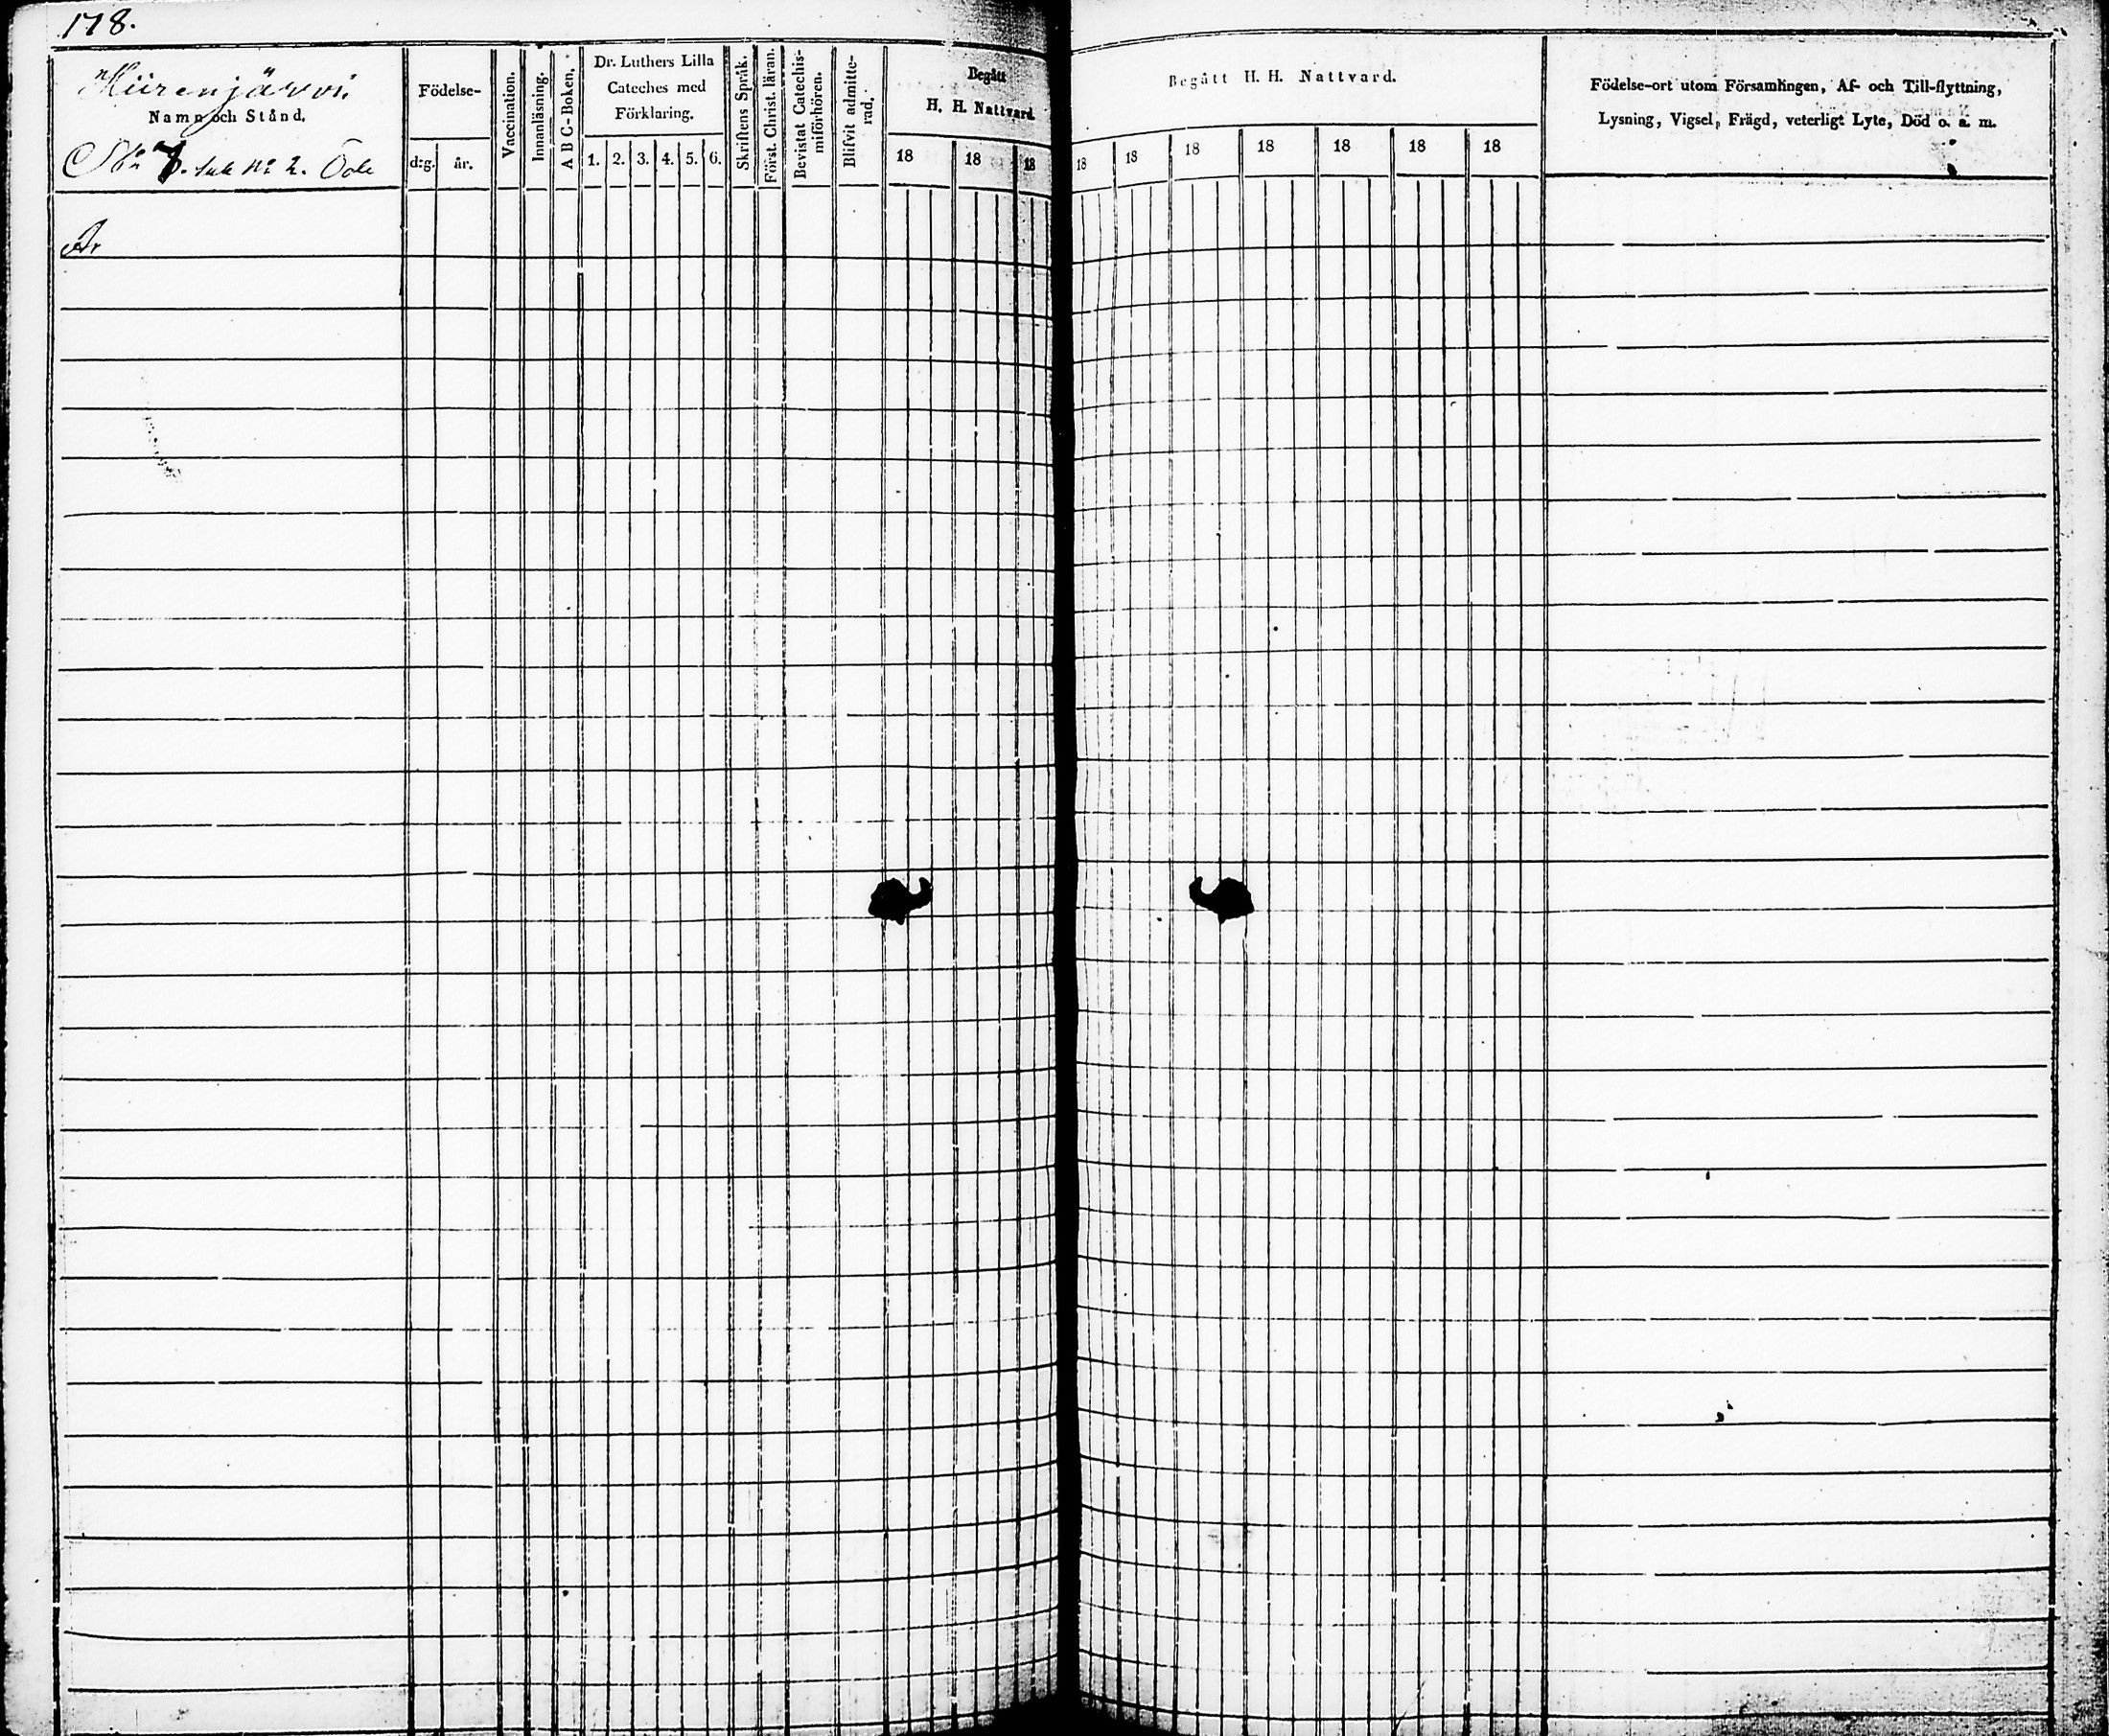 178.
Hiirenjärvi
Namn och Stånd.
No 7. sub No 2. Öde
Födelse-
d:g. år.
Vaccination.
Innanläsning.
A B C-Boken.
Dr. Luthers Lilla
Cateches med
Förklaring.
1. 2. 3. 4. 5. 6.
Skriftens Språk.
Först. Christ. läran.
Bevistat Catechis-
miförhören.
Blifvit admitte-
rad.
Begått
H. H. Nattvard.
18 18 18
Begått H. H. Nattvard.
18 18 18 18 18 18 18
Födelse-ort utom Församlingen, Af- och Till-flyttning,
Lysning, Vigsel, Frägd, veterligt Lyte, Död o. a. m.